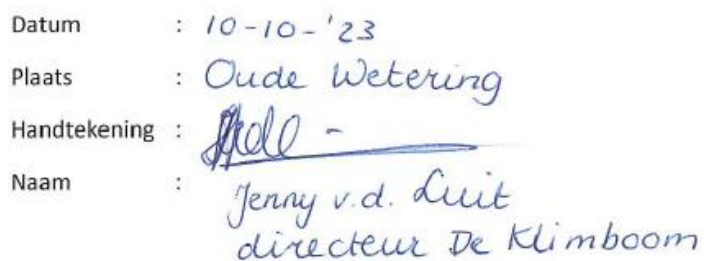 Datum : 10-10-'23
Plaats : Oude Wetering
Handtekening :
Naam : Jenny v.d. Luit
directeur De Klimboom